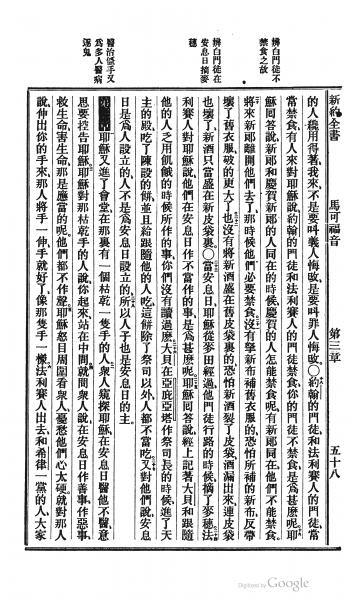 新約全書 馬可福音 第三章 五十八
辨白門徒不
禁食之故
辨白門徒在
安息日摘麥
穗
醫治枯手又
爲多人醫病
逐鬼
的人纔用得著我來不是要叫義人悔改是要叫罪人悔改〇約翰的門徒和法利賽人的門徒當
當禁食有人來對耶穌說約翰的門徒和法利賽人的門徒禁食你的門徒不禁食是爲甚麽呢耶
穌回答說新郎和慶賀新郎的人同在的時候慶賀的人怎能禁食呢有新郎同在他們不能禁食
將來新郎離開他們去了那時候他們必要禁食沒有拏新布補舊衣服的恐怕所補的新布反帶
壞了舊衣服破的更大了也沒有將新酒盛在舊皮袋裏的恐怕新酒裂了皮袋酒漏出來連皮袋
也壞了新酒只當盛在新皮袋裏〇當安息日耶穌從麥田經過他門徒行路的時候摘了麥穗法
利賽人對耶穌說他們在安息日作不當作的事是甚麽呢耶穌回答說經上記著大貝和跟隨
他的人乏用飢餓的時候所作的事你們沒有讀過麽大貝在亞庇亞塔作祭司長的時候進了天
主的殿吃了陳設的餅並且給跟隨他的人吃這餅除了祭司以外人都不當吃又對他們說安息
日是爲人設立的人不是爲安息日設立的所以人子也是安息日的主
耶穌又進了會堂在那裏有一個枯乾一隻手的人衆人窺探耶穌在安息日醫他不醫意
思要控告耶穌耶穌對那枯乾手的人說你起來站在中間就問衆人說在安息日作善事作惡事
救生命害生命那是應當的呢他們都不作聲耶穌怒目周圍看衆人憂愁他們心太硬就對那人
說伸出你的手來那人將手一伸手就好了像那隻手一樣法利賽人出去和希律一黨的人大家
Digitized by Google